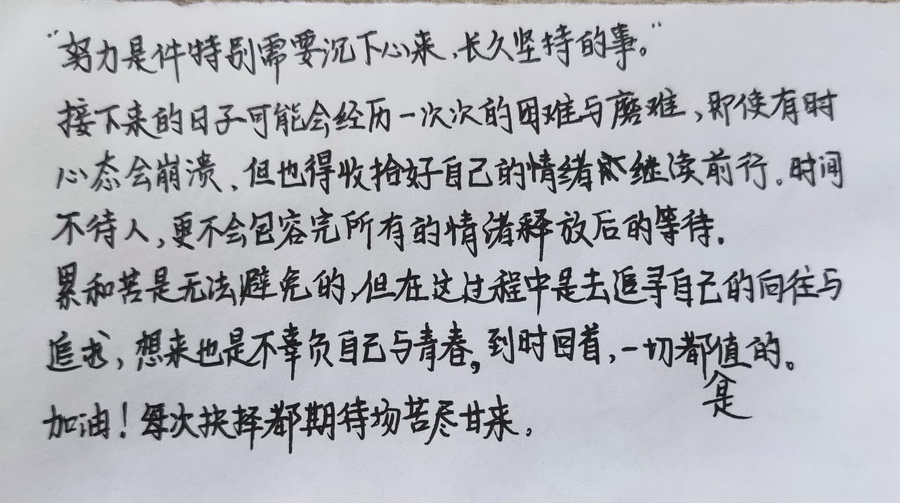 “努力是件特别需要沉下心来、长久坚持的事。”
接下来的日子可能会经历一次次的困难与磨难、即使有时
心态会崩溃、但也得收拾好自己的情绪继续前行。时间
不待人，更不会包容完所有的情绪释放后的等待。
累和苦是无法避免的，但在这过程中是去追寻自己的向往与
追求，想来也是不辜负自己与青春，到时回首，一切都值的。
会是
加油！每次抉择都期待场苦尽甘来。